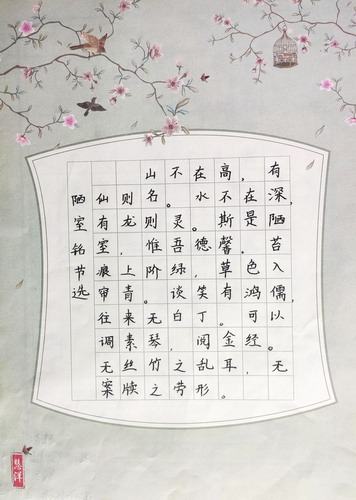 陋室铭节选
山不在高,有
仙则名。水不在深,
有龙则灵。斯是陋
室,惟吾德馨。苔
痕上阶绿,草色入
帘青。谈笑有鸿儒,
往来无白丁。可以
调素琴,阅金经。
无丝竹之乱耳,无
案牍之劳形。